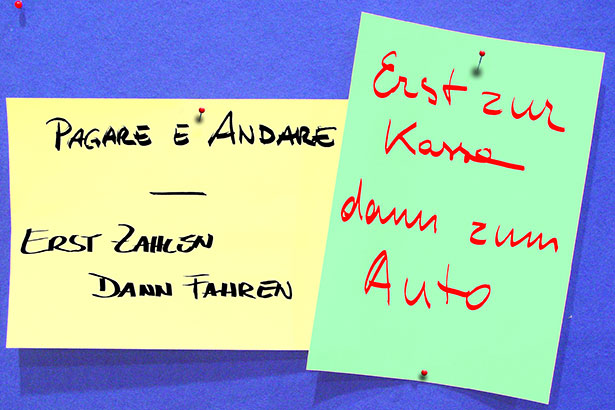 PAGARE E ANDARE
—
ERST ZAHLEN
DANN FAHREN
Erst zur
Kasse
dann zum
Auto